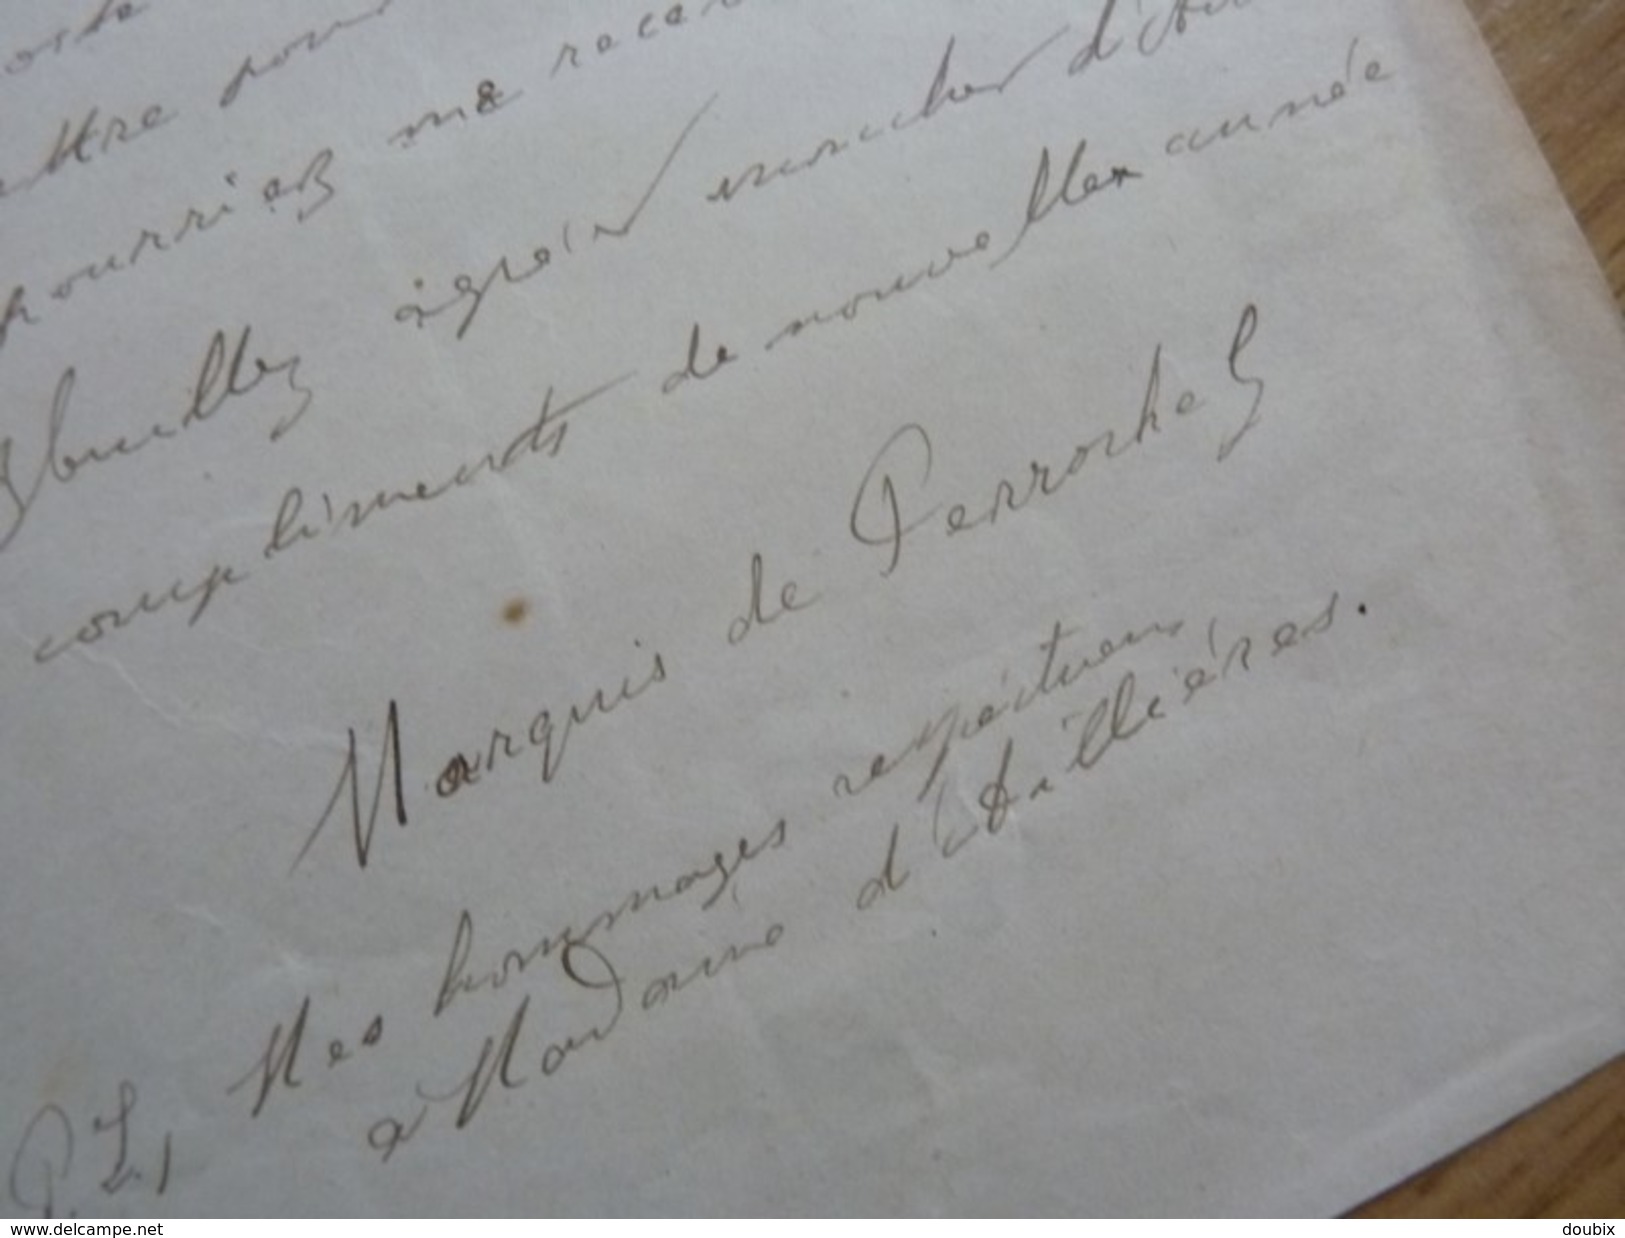 pour
pourriez me rece
Veuillez agréer mon cher d'Ai
compliments de nouvelle année
Marquis de Perrochel
P.S, Mes hommages respectueux
à Madame d'Aillières.
www.delcampe.net
doubix